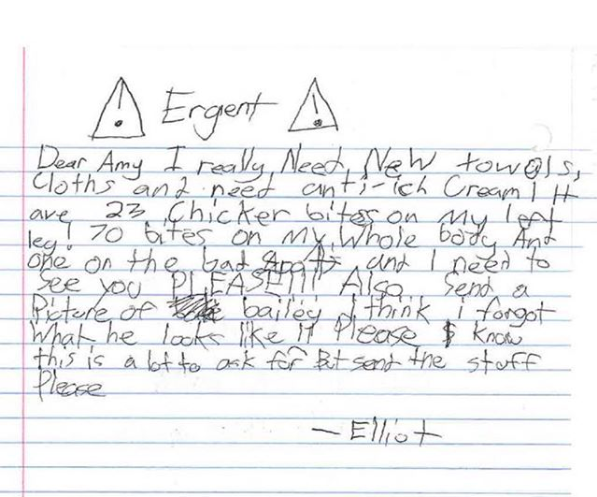 Ergent
Dear Amy I really Need New towels,
Cloths and need anti-itch Cream! H
ave 23 Chicker bites on my left
leg! 70 bites on my Whole body And
one on the bad and I need to
See you PLEASE!!! Also Send a
Picture of bailey I think i forgot
What he looks like!! Please know
this is a lot to ask for But send the stuff
Please
- Elliot